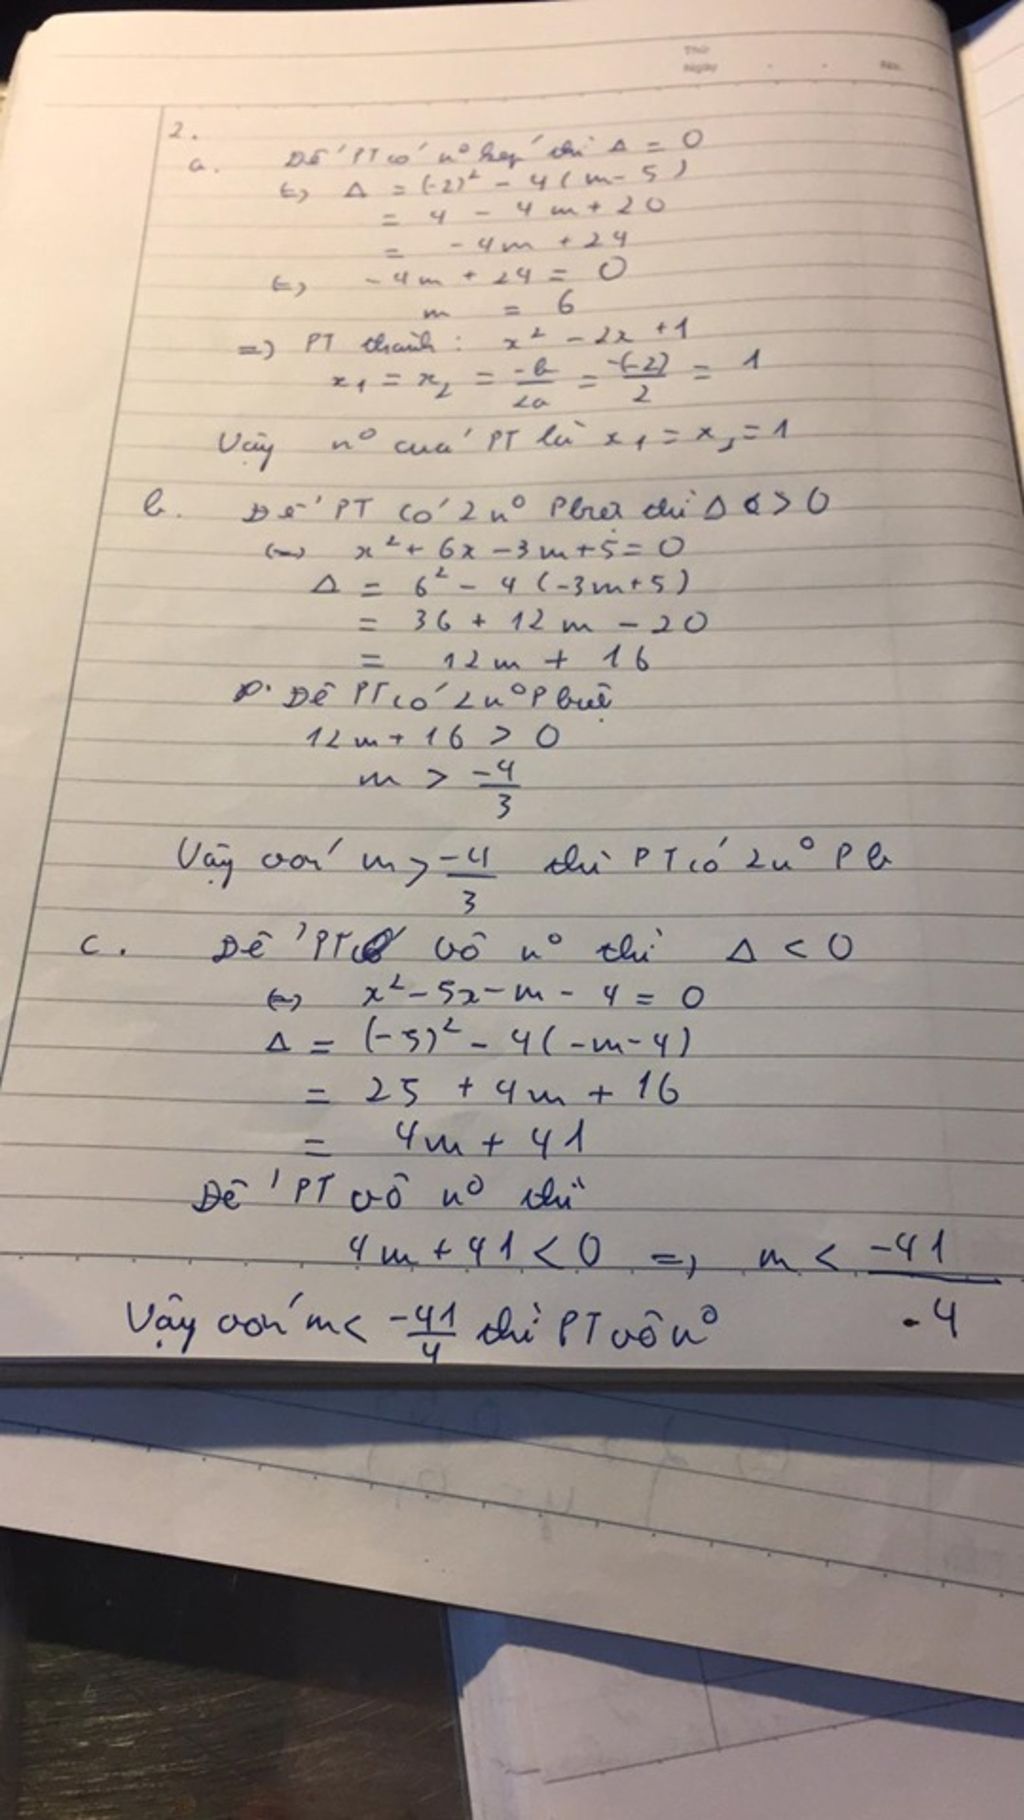 Thứ
Ngày . . No.
2.
a. Để PT có n° kép thì Δ = 0
(=) Δ = (-2)² - 4(m-5)
= 4 - 4m + 20
= -4m + 24
(=) -4m + 24 = 0
m = 6
=) PT thành: x² - 2x + 1
x₁ = x₂ = -b/2a = -(-2)/2 = 1
Vậy n° của PT là x₁ = x₂ = 1
b. Để PT có 2 n° Pbiệt thì Δ > 0
(=) x² + 6x - 3m + 5 = 0
Δ = 6² - 4(-3m+5)
= 36 + 12m - 20
= 12m + 16
Để PT có 2 n° P biệt
12m + 16 > 0
m > -4/3
Vậy với m > -4/3 thì PT có 2 n° P b
c. Để PT vô n° thì Δ < 0
(=) x² - 5x - m - 4 = 0
Δ = (-5)² - 4(-m-4)
= 25 + 4m + 16
= 4m + 41
Để PT vô n° thì
4m + 41 < 0 =) m < -41/4
Vậy với m < -41/4 thì PT vô n°